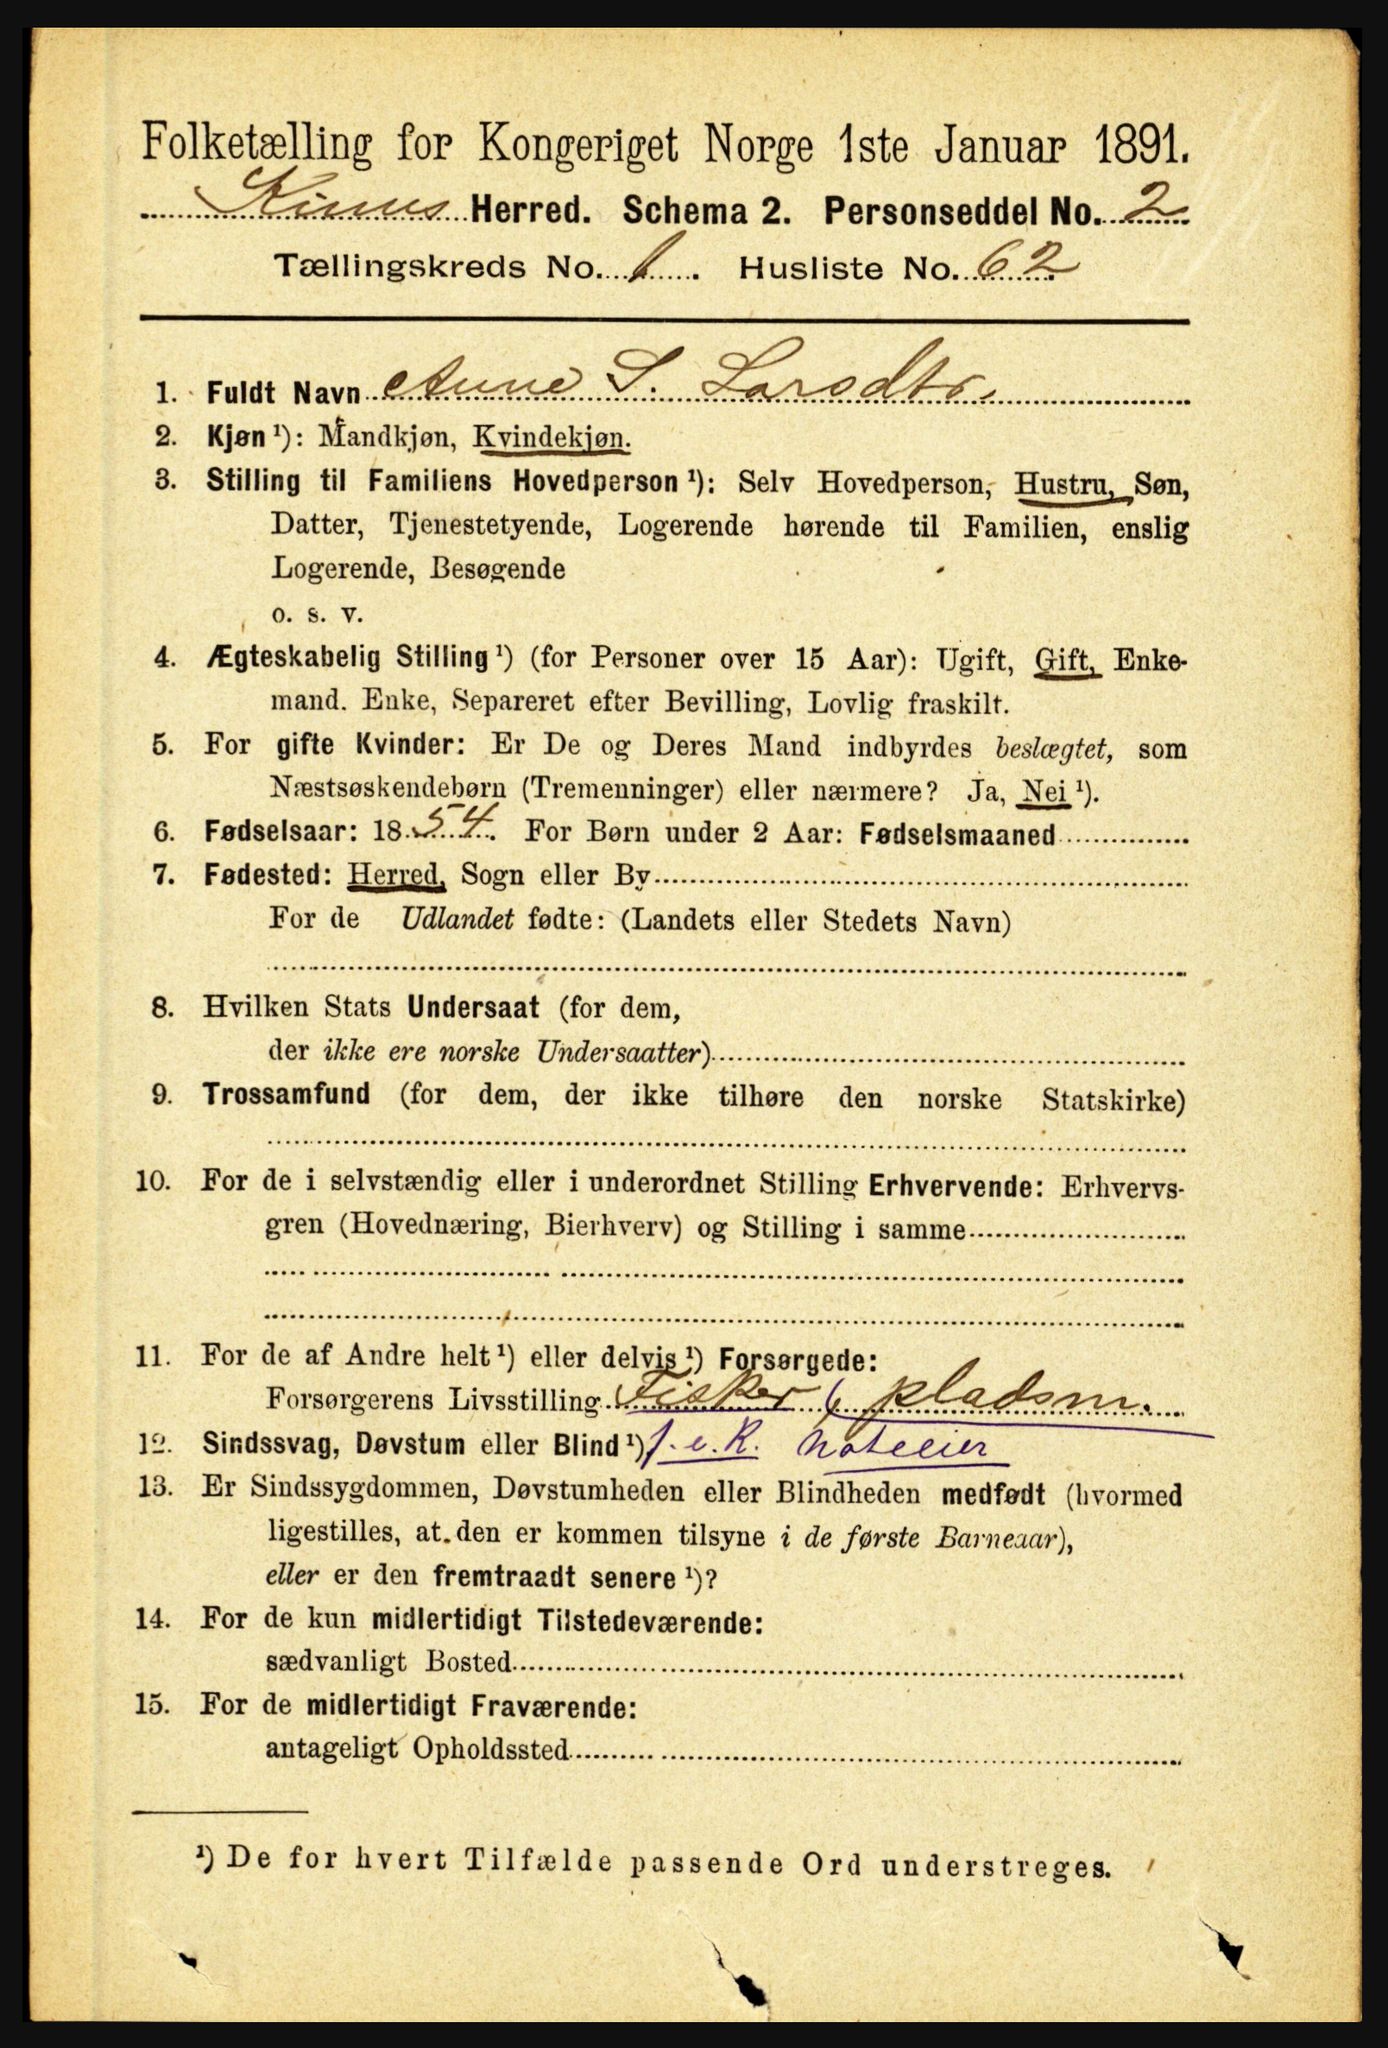 Folketælling for Kongeriget Norge 1ste Januar 1891.
Kinns Herred. Schema 2. Personseddel No. 2
Tællingskreds No. 1. Husliste No. 62
1. Fuldt Navn Anne S. Larsdtr.
2. Kjøn ¹): Mandkjøn, Kvindekjøn.
3. Stilling til Familiens Hovedperson ¹): Selv Hovedperson, Hustru, Søn,
Datter, Tjenestetyende, Logerende hørende til Familien, enslig
Logerende, Besøgende
o. s. v.
4. Ægteskabelig Stilling ¹) (for Personer over 15 Aar): Ugift, Gift, Enke-
mand. Enke, Separeret efter Bevilling, Lovlig fraskilt.
5. For gifte Kvinder: Er De og Deres Mand indbyrdes beslægtet, som
Næstsøskendebørn (Tremenninger) eller nærmere? Ja, Nei ¹).
6. Fødselsaar: 1854. For Børn under 2 Aar: Fødselsmaaned
7. Fødested: Herred, Sogn eller By
For de Udlandet fødte: (Landets eller Stedets Navn)
8. Hvilken Stats Undersaat (for dem,
der ikke ere norske Undersaatter)
9. Trossamfund (for dem, der ikke tilhøre den norske Statskirke)
10. For de i selvstændig eller i underordnet Stilling Erhvervende: Erhvervs-
gren (Hovednæring, Bierhverv) og Stilling i samme
11. For de af Andre helt ¹) eller delvis ¹) Forsørgede:
Forsørgerens Livsstilling Fisker pladsm.
12. Sindssvag, Døvstum eller Blind ¹) f.e.R. Noteeier
13. Er Sindssygdommen, Døvstumheden eller Blindheden medfødt (hvormed
ligestilles, at den er kommen tilsyne i de første Barneaar),
eller er den fremtraadt senere ¹)?
14. For de kun midlertidigt Tilstedeværende:
sædvanligt Bosted
15. For de midlertidigt Fraværende:
antageligt Opholdssted
¹) De for hvert Tilfælde passende Ord understreges.